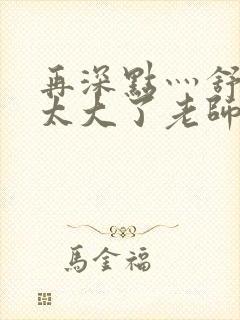 再深點灬舒
太大了老師
馬金福